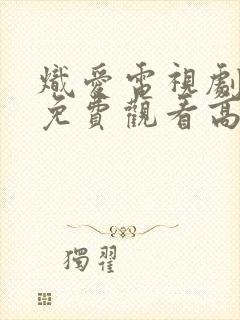 熾愛雷視劇
免費觀看高
獨翟